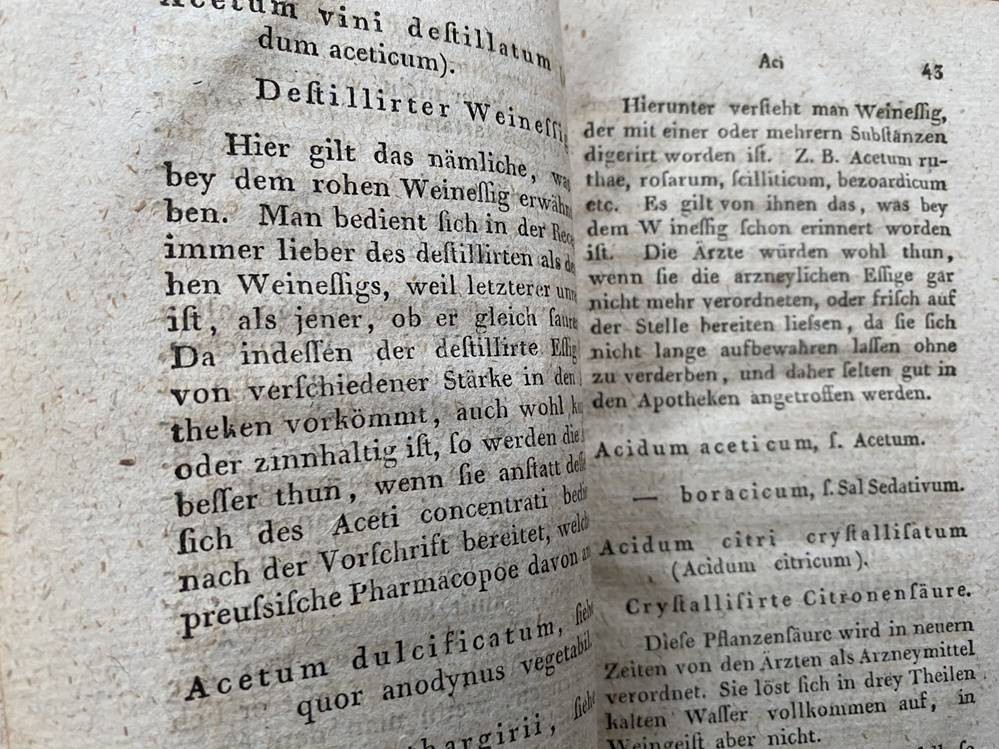 Acetum vini deſtillatum
dum aceticum).
Deſtillirter Weineſſig
Hier gilt das nämliche,
bey dem rohen Weineſſig
ben. Man bedient ſich in der
immer lieber des deſtillirten als
hen Weineſſigs, weil letzterer
iſt, als jener, ob er gleich
Da indeſſen der deſtillirte Eſſig
von verſchiedener Stärke in den
theken vorkömmt, auch wohl
oder zinnhaltig iſt, ſo werden die
beſſer thun, wenn ſie anſtatt
ſich des Aceti concentrati
nach der Vorſchrift bereitet,
preuſsiſche Pharmacopoe davon
Acetum dulcificatum,
quor anodynus
Aci 43
Hierunter verſteht man Weineſſig,
der mit einer oder mehrern Subſtanzen
digerirt worden iſt. Z. B. Acetum ru-
thae, roſarum, ſcilliticum, bezoardicum
etc. Es gilt von ihnen das, was bey
dem W ineſſig ſchon erinnert worden
iſt. Die Ärzte würden wohl thun,
wenn ſie die arzneylichen Eſſige gar
nicht mehr verordneten, oder friſch auf
der Stelle bereiten lieſsen, da ſie ſich
nicht lange aufbewahren laſſen ohne
zu verderben, und daher ſelten gut in
den Apotheken angetroffen werden.
Acidum aceticum, ſ. Acetum.
— boracicum, ſ. Sal Sedativum.
Acidum citri cryſtalliſatum
(Acidum citricum).
Cryſtalliſirte Citronenſäure.
Dieſe Pflanzenſäure wird in neuern
Zeiten von den Ärzten als Arzneymittel
verordnet. Sie löst ſich in drey Theilen
kalten Waſſer vollkommen auf, in
Weingeiſt aber nicht.